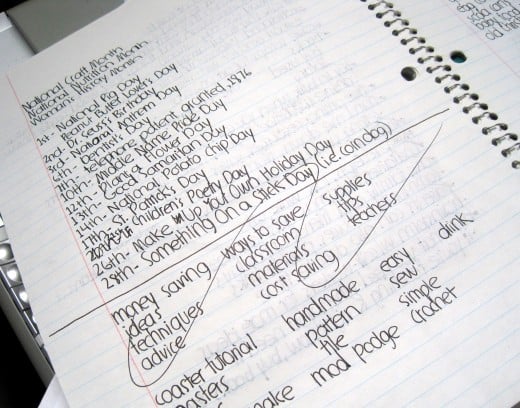 National Craft Month
National Nutrition Month
Women's History Month
1st- National Pig Day
1st- Peanut Butter Lover's Day
2nd- Dr. Seuss' Birthday
3rd- National Anthem Day
6th- Dentist's Day
7th- telephone patent granted, 1876
10th- Middle Name Pride Day
12th- Plant a Flower Day
13th- Good Samaritan Day
14th- National Potato Chip Day
17th- St. Patrick's Day
Children's Poetry Day
26th- Make Up Your Own Holiday Day
28th- Something On a Stick Day (i.e. corndog)
money saving
ideas
techniques
advice
ways to save
classroom
materials
cost saving
supplies
tips
teachers
coaster tutorial
coasters
make
handmade
pattern
tile
mod podge
easy
sew
simple
crochet
drink